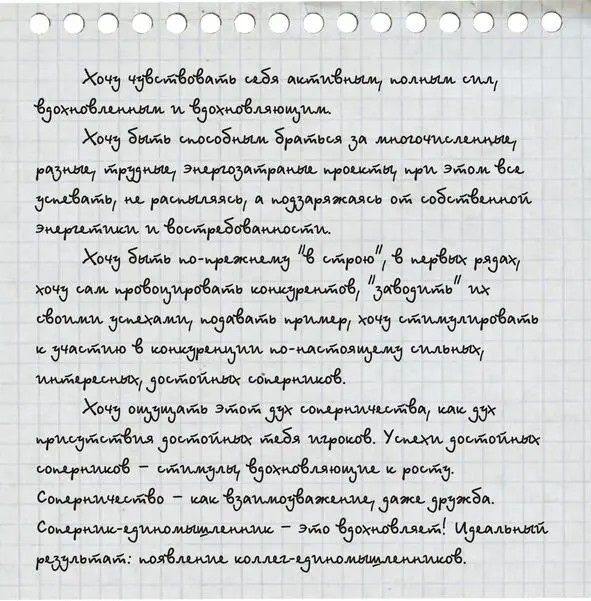 Хочу чувствовать себя активным, полным сил,
вдохновленным и вдохновляющим.
Хочу быть способным браться за многочисленные,
разные, трудные, энергозатраные проекты, при этом все
успевать, не распыляясь, а подзаряжаясь от собственной
энергетики и востребованности.
Хочу быть по-прежнему "в строю", в первых рядах,
хочу сам провоцировать конкурентов, "заводить" их
своими успехами, подавать пример, хочу стимулировать
к участию в конкуренции по-настоящему сильных,
интересных, достойных соперников.
Хочу ощущать этот дух соперничества, как дух
присутствия достойных тебя игроков. Успехи достойных
соперников – стимулы, вдохновляющие к росту.
Соперничество – как взаимоуважение, даже дружба.
Соперник-единомышленник – это вдохновляет! Идеальный
результат: появление коллег-единомышленников.